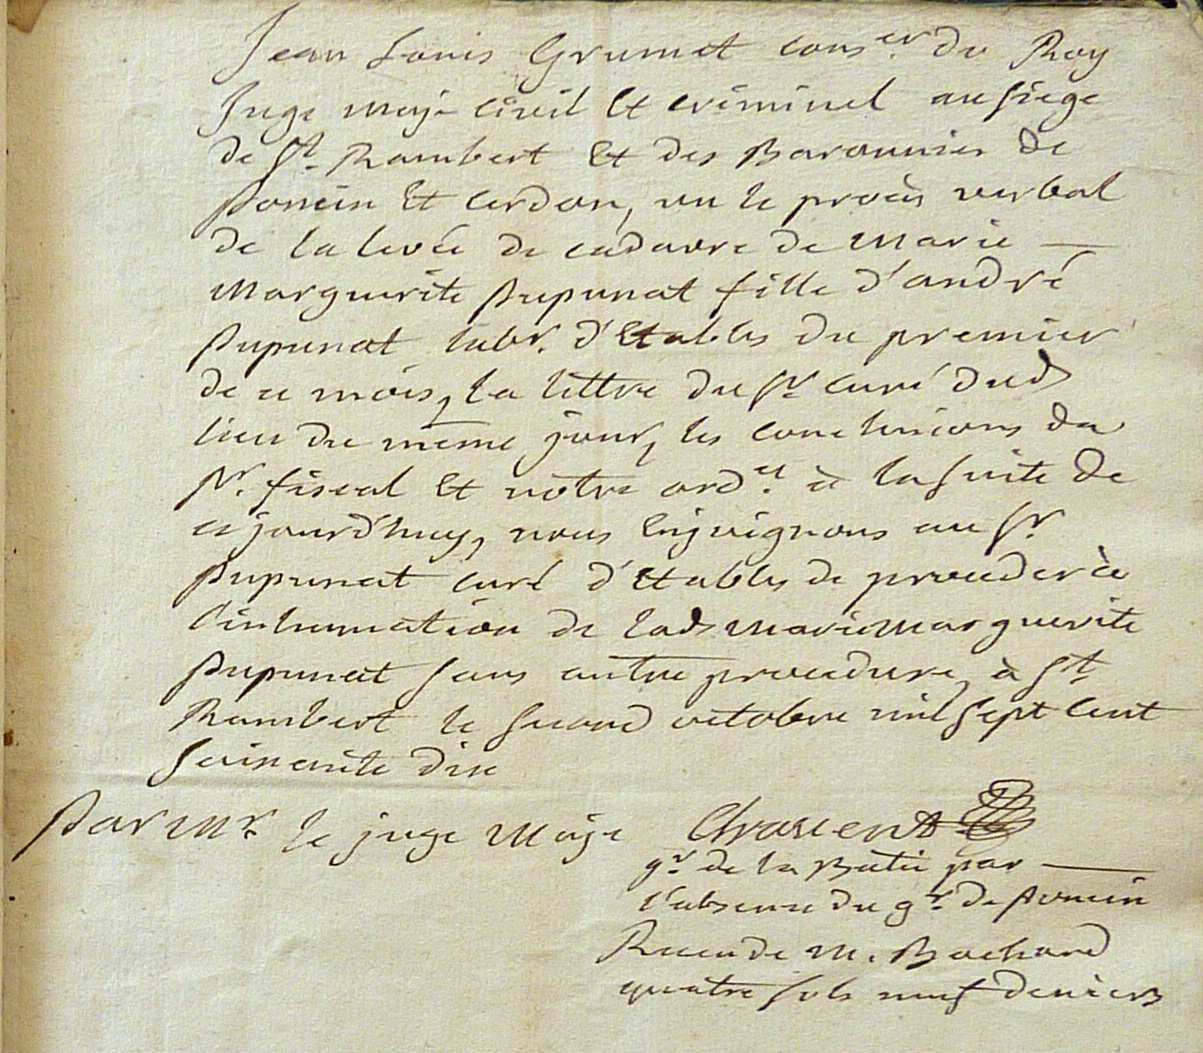 Jean Louis Grumet cons.er du Roy
Juge maje civil et criminel au siege
de St. Rambert et des Baronnies de
Poncin et Cerdon, vu le procès verbal
de la levée de cadavre de Marie —
Marguerite Pupunat fille d'andré
Pupunat labr. d'Etables du premier
de ce mois, la lettre du Sr. curé dud
lieu du même jour, les conclusions du
Pr. fiscal et notre ord.ce à la suite de
cejourd'huy, nous Enjoignons au Sr
Pupunat curé d'Etables de proceder à
l'inhumation de lad. Marie Marguerite
Pupunat sans autre procedure, à St
Rambert le second octobre mil sept cent
soixante dix
Par Mr. le juge Maje
gr. de la Batie par —
l'absence du gr. de Poncin
Receu de M. Bochard
quatre sols neuf deniers